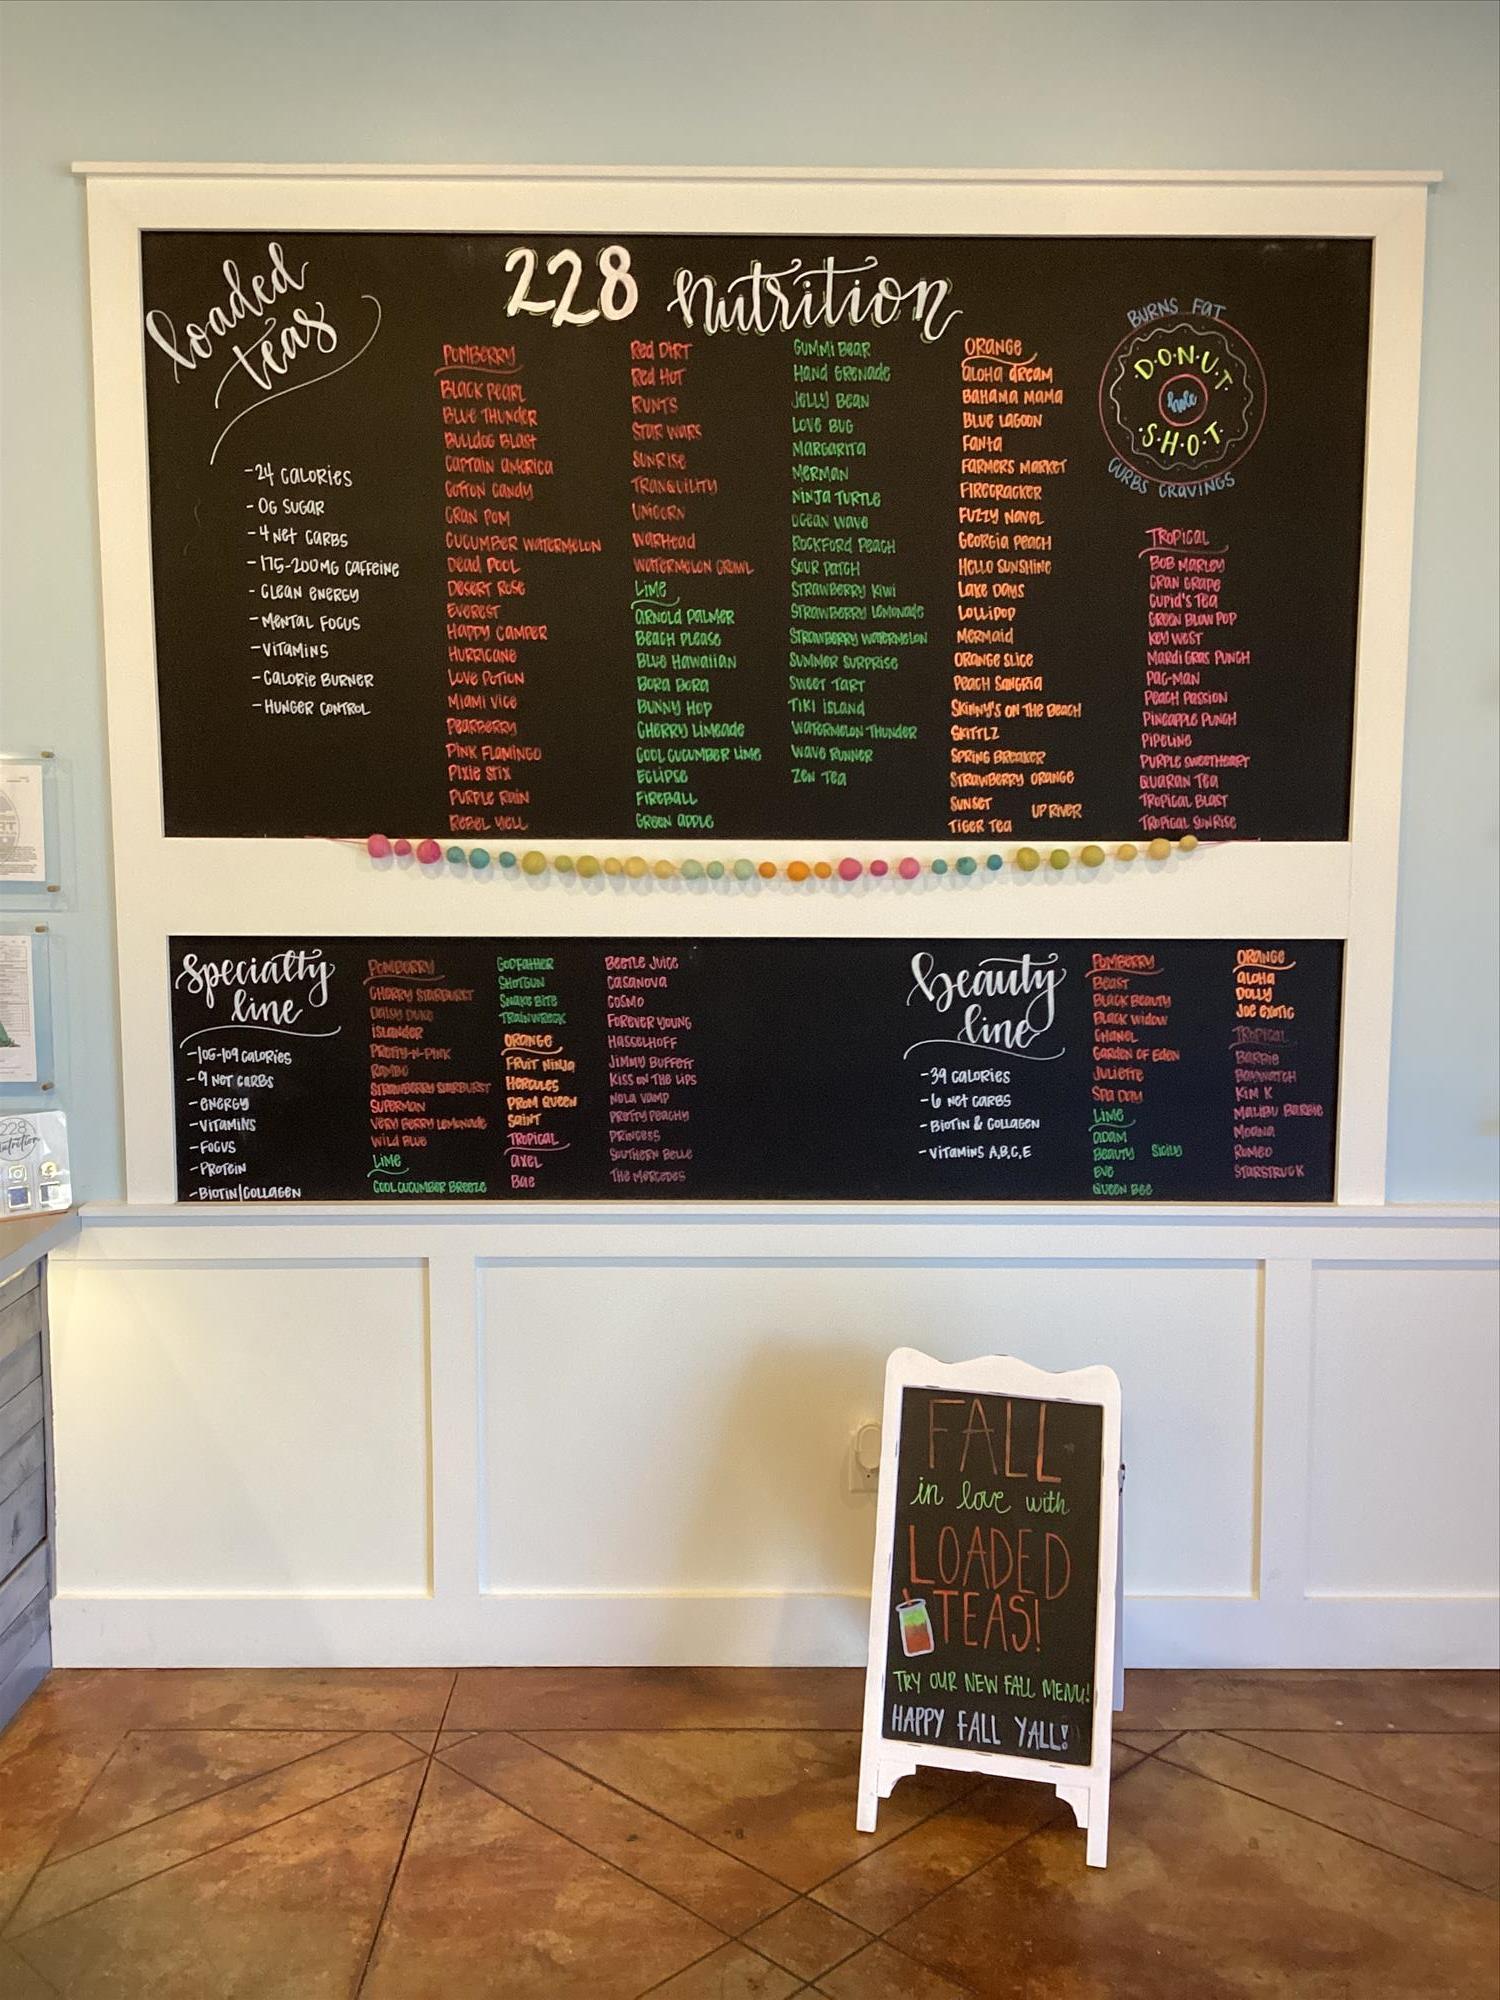 loaded
teas
-24 CALORIES
-0G SUGAR
-4 NET CARBS
-175-200MG CAFFEINE
-CLEAN ENERGY
-MENTAL FOCUS
-VITAMINS
-CALORIE BURNER
-HUNGER CONTROL
228 nutrition
POMBERRY
BLACK PEARL
BLUE THUNDER
BULLDOG BLAST
CAPTAIN AMERICA
COTTON CANDY
CRAN POM
CUCUMBER WATERMELON
DEAD POOL
DESERT ROSE
EVEREST
HAPPY CAMPER
HURRICANE
LOVE POTION
MIAMI VICE
PEARBERRY
PINK FLAMINGO
PIXIE STIX
PURPLE RAIN
REBEL YELL
RED DIRT
RED HOT
RUNTS
STAR WARS
SUNRISE
TRANQUILITY
UNICORN
WARHEAD
WATERMELON CRAWL
LIME
ARNOLD PALMER
BEACH PLEASE
BLUE HAWAIIAN
BORA BORA
BUNNY HOP
CHERRY LIMEADE
COOL CUCUMBER LIME
ECLIPSE
FIREBALL
GREEN APPLE
GUMMI BEAR
HAND GRENADE
JELLY BEAN
LOVE BUG
MARGARITA
MERMAN
NINJA TURTLE
OCEAN WAVE
ROCKFORD PEACH
SOUR PATCH
STRAWBERRY KIWI
STRAWBERRY LEMONADE
STRAWBERRY WATERMELON
SUMMER SURPRISE
SWEET TART
TIKI ISLAND
WATERMELON THUNDER
WAVE RUNNER
ZEN TEA
ORANGE
ALOHA DREAM
BAHAMA MAMA
BLUE LAGOON
FANTA
FARMERS MARKET
FIRECRACKER
FUZZY NAVEL
GEORGIA PEACH
HELLO SUNSHINE
LAKE DAYS
LOLLIPOP
MERMAID
ORANGE SLICE
PEACH SANGRIA
SKINNY'S ON THE BEACH
SKITTLZ
SPRING BREAKER
STRAWBERRY ORANGE
SUNSET UP RIVER
TIGER TEA
BURNS FAT
DONUT
hole
SHOT
CURBS CRAVINGS
TROPICAL
BOB MARLEY
CRAN GRAPE
CUPID'S TEA
GREEN BLOW POP
KEY WEST
MARDI GRAS PUNCH
PAC-MAN
PEACH PASSION
PINEAPPLE PUNCH
PIPELINE
PURPLE SWEETHEART
QUARAN TEA
TROPICAL BLAST
TROPICAL SUNRISE
specialty
line
-105-109 CALORIES
-9 NET CARBS
-ENERGY
-VITAMINS
-FOCUS
-PROTEIN
-BIOTIN/COLLAGEN
POMBERRY
CHERRY STARBURST
DAISY DUKE
ISLANDER
PRETTY-N-PINK
RAMBO
STRAWBERRY STARBURST
SUPERMAN
VERY BERRY LEMONADE
WILD BLUE
LIME
COOL CUCUMBER BREEZE
GODFATHER
SHOTGUN
SNAKE BITE
TRAINWRECK
ORANGE
FRUIT NINJA
HERCULES
PROM QUEEN
SAINT
TROPICAL
AXEL
BAE
BEETLE JUICE
CASANOVA
COSMO
FOREVER YOUNG
HASSELHOFF
JIMMY BUFFETT
KISS ON THE LIPS
NOLA VAMP
PRETTY PEACHY
PRINCESS
SOUTHERN BELLE
THE MERCEDES
beauty
line
-39 CALORIES
-6 NET CARBS
-BIOTIN & COLLAGEN
-VITAMINS A,B,C,E
POMBERRY
BEAST
BLACK BEAUTY
BLACK WIDOW
CHANEL
GARDEN OF EDEN
JULIETTE
SPA DAY
LIME
ADAM
BEAUTY SICILY
EVE
QUEEN BEE
ORANGE
ALOHA
DOLLY
JOE EXOTIC
TROPICAL
BARBIE
BAYWATCH
KIM K
MALIBU BARBIE
MOANA
ROMEO
STARSTRUCK
228
nutrition
FALL
in love with
LOADED
TEAS!
TRY OUR NEW FALL MENU!
HAPPY FALL YALL!